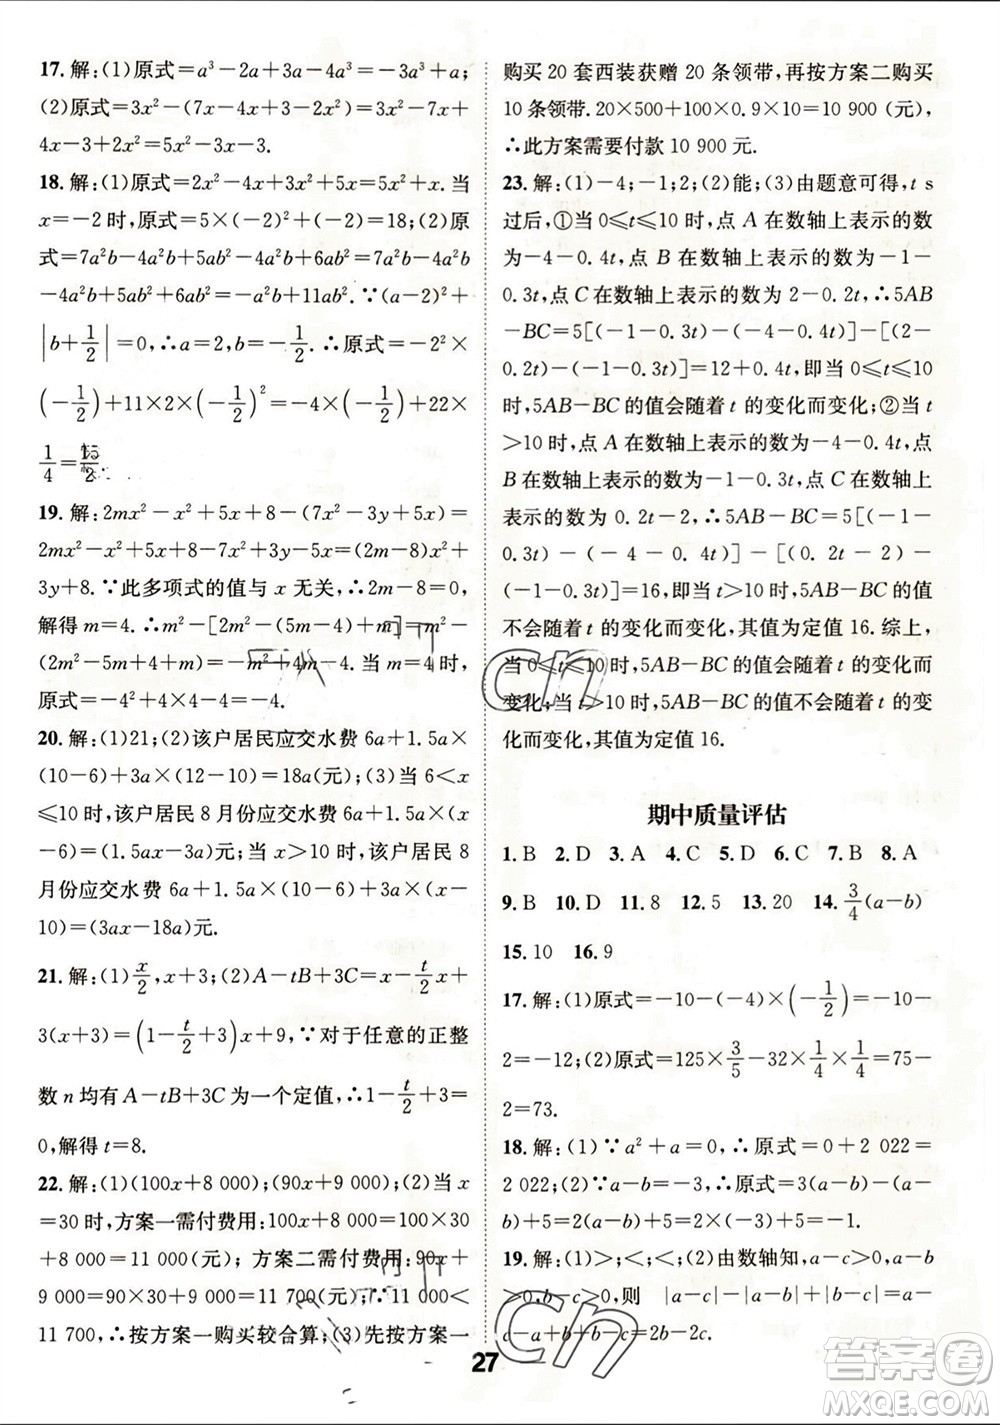 17. 解:(1)原式=a³-2a+3a-4a³=-3a³+a;
(2)原式=3x²-(7x-4x+3-2x²)=3x²-7x+
4x-3+2x²=5x²-3x-3.
18. 解:(1)原式=2x²-2x²-4x+3x²+5x=5x²+x. 当
x=-2时,原式=5×(-2)²+(-2)=18;(2)原
式=7a²b-4a²b+5ab²-4a²b+6ab²=7a²b-4a²b
-4a²b+5ab²+6ab²=-a²b+11ab². ∵(a-2)²+
|b+1/2|=0,∴a=2,b=-1/2. ∴原式=-2²×
(-1/2)+11×2×(-1/2)²=-4×(-1/2)+22×
1/4=15/2.
19. 解:2mx²-x²+5x+8-(7x²-3y+5x)=
2mx²-x²+5x+8-7x²+3y-5x=(2m-8)x²+
3y+8. ∵此多项式的值与 x 无关,∴2m-8=0,
解得 m=4. ∴m²-[2m²-(5m-4)+m]=m²-
2m²+5m-4-m=-m²+4m-4. 当 m=4时,
原式=-4²+4×4-4=-4.
20. 解:(1)21;(2)该户居民应交水费 6a+1.5a×
(10-6)+3a×(15-10)=18a(元);(3)当 6<x
≤10时,该户居民8月份应交水费 6a+1.5a×(x
-6)=(1.5ax-3a)元;当 x>10时,该户居民8
月份应交水费 6a+1.5a×(10-6)+3a×(x-
10)=(3ax-18a)元.
21. 解:(1)x/2,x+3;(2)A-tB+3C=x-t/2x+
3(x+3)=(1-t/2+3)x+9,∵对于任意的正整
数 n 均有 A-tB+3C 是一个定值,∴1-t/2+3=
0,解得 t=8.
22. 解:(1)(100x+8 000),(90x+9 000);(2)当 x
=30时,方案一需付费用:100x+8 000=100×30
+8 000=11 000(元);方案二需付费用:90x+
9 000=90×30+9 000=11 700(元);∵11 000<
11 700,∴按方案一购买较合算;(3)先按方案一
购买20套西装获赠20条领带,再按方案二购买
10条领带. 20×500+100×0.9×10=10 900(元),
∴此方案需要付款 10 900元.
23. 解:(1)-4;-1;2;(2)能;(3)由题意可得,t s
过后,①当 0≤t≤10时,点 A 在数轴上表示的数
为-4-0.4t,点 B 在数轴上表示的数为-1-
0.3t,点 C 在数轴上表示的数为 2-0.2t,∴5AB
-BC=5[(-1-0.3t)-(-4-0.4t)]-[(2-
0.2t)-(-1-0.3t)]=12+0.4t,即当 0≤t≤10
时,5AB-BC的值会随着 t 的变化而变化;②当 t
>10时,点 A 在数轴上表示的数为-4-0.4t,点
B 在数轴上表示的数为-1-0.3t,点 C 在数轴上
表示的数为 0.2t-2,∴5AB-BC=5[(-1-
0.3t)-(-4-0.4t)]-[(0.2t-2)-
(-1-0.3t)]=16,即当 t>10时,5AB-BC的值
不会随着 t 的变化而变化,其值为定值16. 综上,
当 0≤t≤10时,5AB-BC的值会随着 t 的变化而
变化;当 t>10时,5AB-BC的值不会随着 t 的变
化而变化,其值为定值16.
期中质量评估
1. B 2. D 3. A 4. C 5. D 6. C 7. B 8. A
9. B 10. D 11. 8 12. 5 13. 20 14. 3/4(a-b)
15. 10 16. 9
17. 解:(1)原式=-10-(-4)×(-1/2)=-10-
2=-12;(2)原式=125×3/5-32×1/4×1/4=75-
2=73.
18. 解:(1)∵a²+a=0,∴原式=0+2 022=
2 022;(2)∵a-b=-3,∴原式=3(a-b)-(a-
b)+5=2(a-b)+5=2×(-3)+5=-1.
19. 解:(1)>;<;<;(2)由数轴知,a-c>0,a-b
>0,b-c>0,则 |a-c|-|a-b|+|b-c|=a-
c-a+b+b-c=2b-2c.
27
答案圈
MXQE.COM